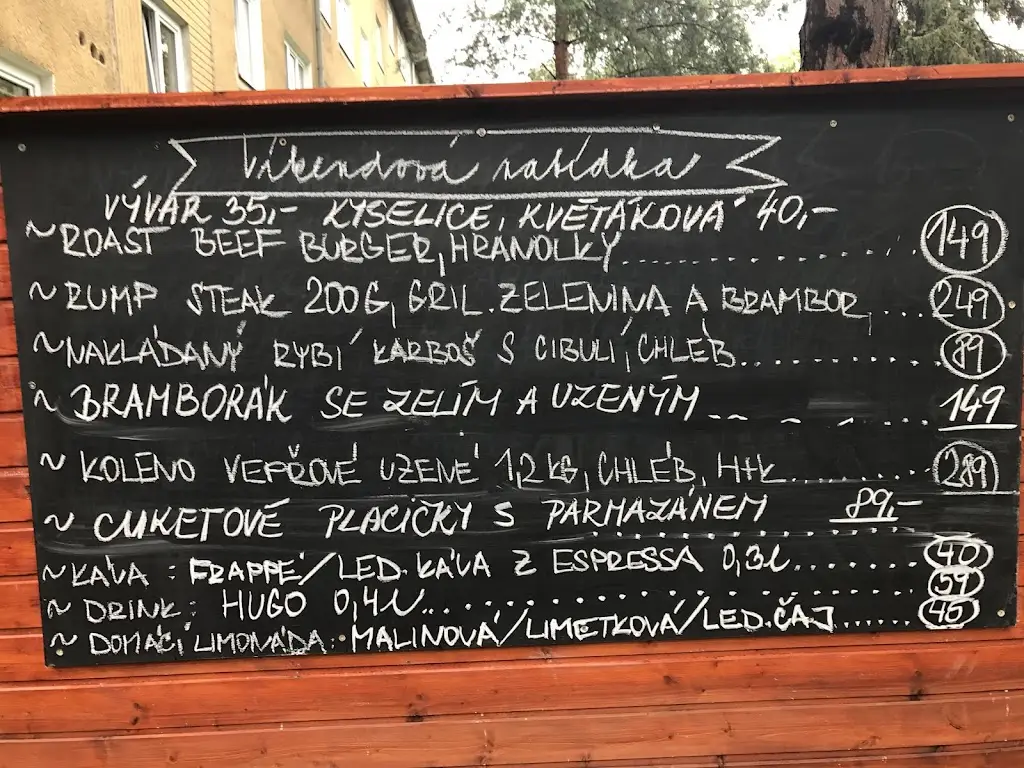 Víkendová nabídka
VÝVAR 35,- KYSELICE, KVĚTÁKOVÁ 40,-
~ROAST BEEF BURGER, HRANOLKY........... 149
~RUMP STEAK 200G, GRIL. ZELENINA A BRAMBOR.... 249
~NAKLÁDANÝ RYBÍ KARBOŠ S CIBULÍ, CHLÉB............ 89
~BRAMBORÁK SE ZELÍM A UZENÝM 149
~KOLENO VEPŘOVÉ UZENÉ 1,2 KG, CHLÉB, H+K......... 289
~CUKETOVÉ PLACIČKY S PARMAZÁNEM 89,-
~KÁVA: FRAPPÉ/LED. KÁVA Z ESPRESSA 0,3l....... 40
~DRINK: HUGO 0,4l............ 59
~DOMÁCÍ LIMONÁDA: MALINOVÁ/LIMETKOVÁ/LED. ČAJ...... 45